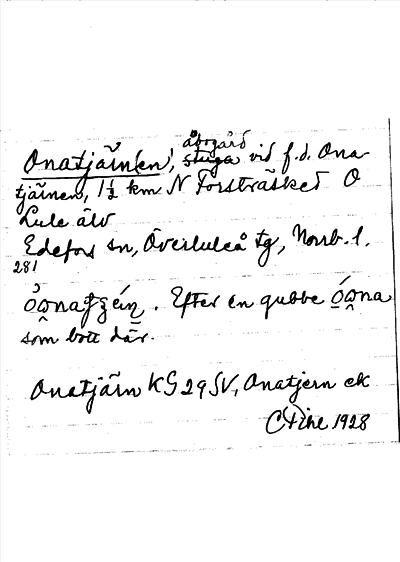 åbogård
Onatjärn(en), stuga vid f.d. Ona
tjärnen, 1½ km N Forsträsket O
Lule älv
Edefors sn, Överluleå tg, Norrb. l.
281
Efter en gubbe
som bott där.
Onatjärn KG 29 SV, Onatjern ek
1928